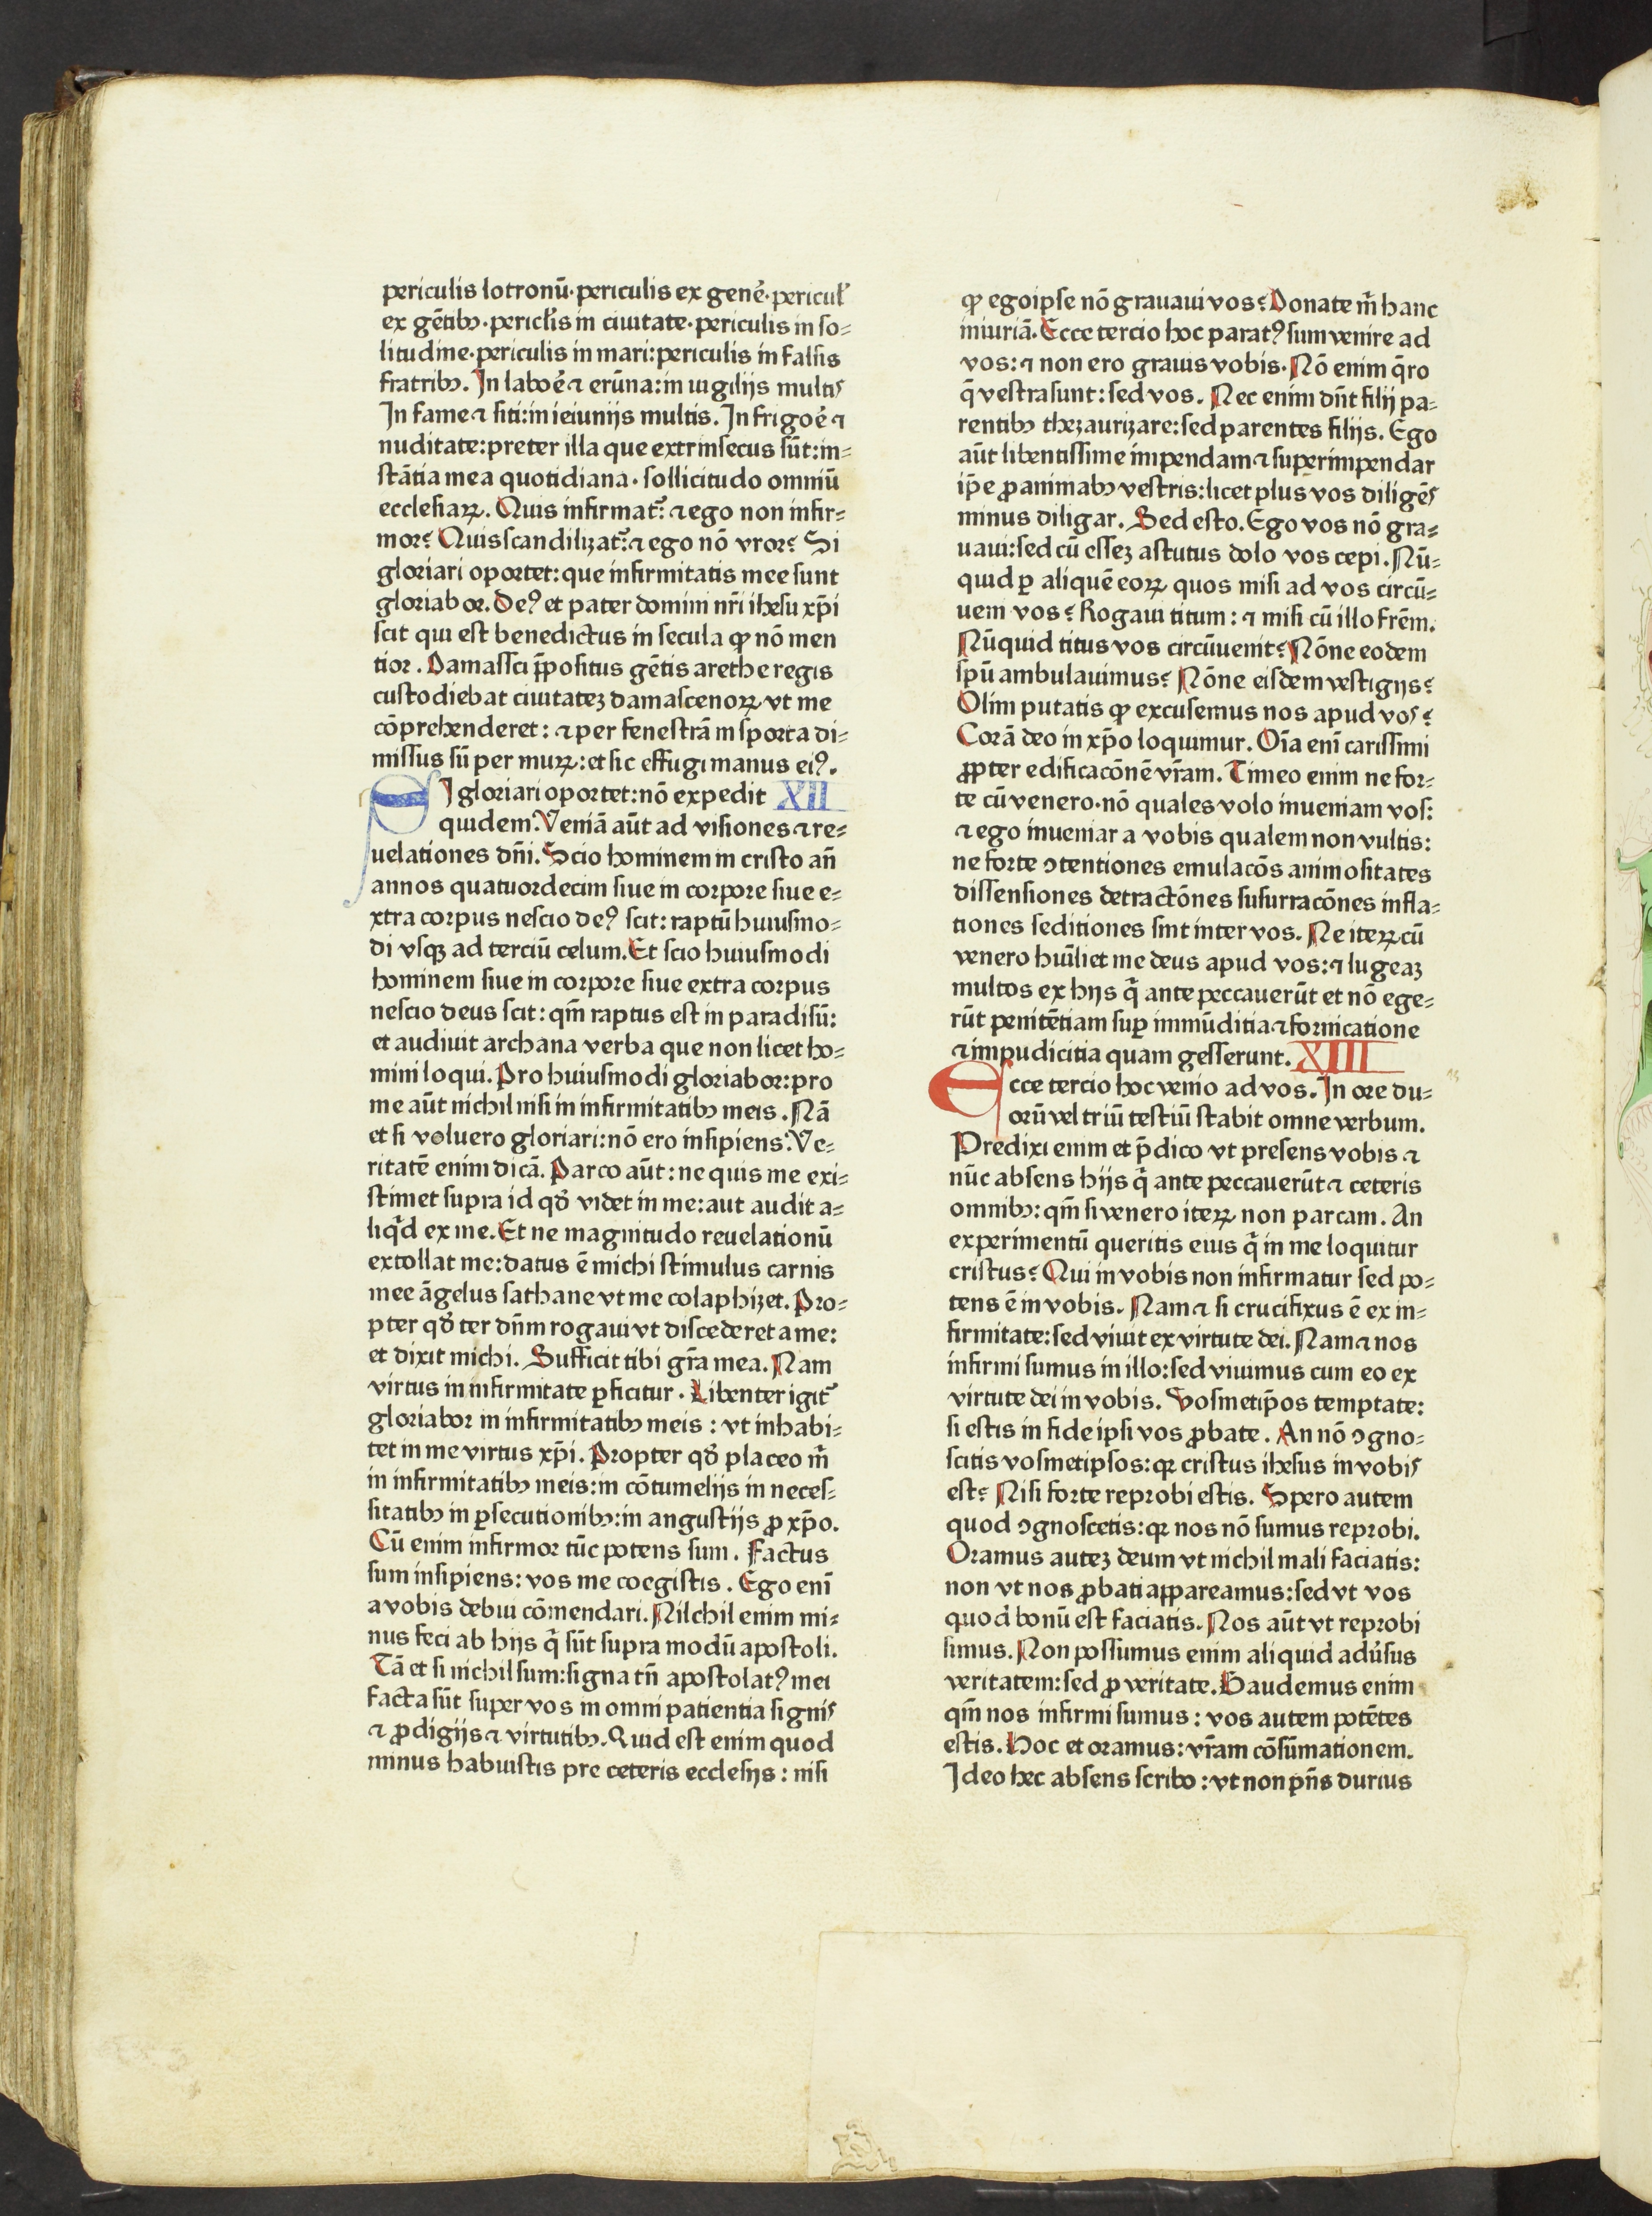 periculis lotronū·periculis ex genē·pericul̕
ex gētibꝫ·pericl̕is in ciuitate·periculis in so⸗
litudine·periculis in mari:periculis in falsis
fratribꝫ. In laboē ⁊ erūna:in uigilijs multis
In fame ⁊ siti:in ieiunijs multis. In frigoē ⁊
nuditate:preter illa que extrinsecus sūt:in⸗
stātia mea quotidiana·sollicitudo omniū
ecclesiaꝝ. Quis infirmat᷑? ⁊ ego non infir⸗
mor? Quis scandilizat᷑? ⁊ ego nō vror? Si
gloriari oportet:que infirmitatis mee sunt
gloriabor. Deꝰ et pater domini nr̄i ihesu xp̄i
scit qui est benedictus in secula ꝙ nō men
tior. Damassci p̄positus gētis arethe regis
custodiebat ciuitateꝫ damascenoꝝ vt me
cōprehenderet: ⁊ per fenestrā in sporta di⸗
missus sū per muꝝ:et sic effugi manus eiꝰ.
SI gloriari oportet:nō expedit XII
quidem. Veniā aūt ad visiones ⁊ re⸗
uelationes dn̄i. Scio hominem in cristo an̄
annos quatuordecim siue in corpore siue e⸗
xtra corpus nescio deꝰ scit: raptū huiusmo⸗
di vsqꝫ ad terciū celum. Et scio huiusmodi
hominem siue in corpore siue extra corpus
nescio deus scit: qm̄ raptus est in paradisū:
et audiuit archana verba que non licet ho⸗
mini loqui. Pro huiusmodi gloriabor:pro
me aūt nichil nisi in infirmitatibꝫ meis. Nā
et si voluero gloriari:nō ero insipiens. Ve⸗
ritatē enim dicā. Parco aūt: ne quis me exi⸗
stimet supra id qđ videt in me:aut audit a⸗
liq̄d ex me. Et ne magnitudo reuelationū
extollat me:datus ē michi stimulus carnis
mee āgelus sathane vt me colaphizet. Pro⸗
pter qđ ter dn̄m rogaui vt discederet a me:
et dixit michi. Sufficit tibi gr̄a mea. Nam
virtus in infirmitate ꝑficitur. Libenter igit᷑
gloriabor in infirmitatibꝫ meis : vt inhabi⸗
tet in me virtus xp̄i. Propter qđ placeo m̄
in infirmitatibꝫ meis:in cōtumelijs in neces⸗
sitatibꝫ in ꝑsecutionibꝫ:in angustijs ꝓ xp̄o.
Cū enim infirmor tūc potens sum. Factus
sum insipiens: vos me coegistis. Ego enī
a vobis debui cōmendari. Nilchil enim mi⸗
nus feci ab hijs q̄ sūt supra modū apostoli.
Tā et si nichil sum:signa tn̄ apostolatꝰ mei
facta sūt super vos in omni patientia signis
⁊ ꝓdigijs ⁊ virtutibꝫ. Quid est enim quod
minus habuistis pre ceteris ecclesijs : nisi
ꝙ ego ipse nō grauaui vos? Donate m̄ hanc
iniuriā. Ecce tercio hoc paratꝰ sum venire ad
vos: ⁊ non ero grauis vobis. Nō enim q̄ro
q̄ vestra sunt: sed vos. Nec enim dn̄t filij pa⸗
rentibꝫ thezaurizare:sed parentes filijs. Ego
aūt libentissime impendam ⁊ superimpendar
ip̄e ꝓ animabꝫ vestris:licet plus vos diligēs
minus diligar. Sed esto. Ego vos nō gra⸗
uaui:sed cū esseꝫ astutus dolo vos cepi. Nū⸗
quid ꝑ aliquē eoꝝ quos misi ad vos circū⸗
ueni vos? Rogaui titum: ⁊ misi cū illo frēm.
Nūquid titus vos circūuenit? Nōne eodem
spū ambulauimus? Nōne eisdem vestigijs?
Olim putatis ꝙ excusemus nos apud vos?
Corā deo in xp̄o loquimur. Oīa enī carissimi
ꝓpter edificacōnē vr̄am. Timeo enim ne for⸗
te cū venero·nō quales volo inueniam vos:
⁊ ego inueniar a vobis qualem non vultis:
ne forte ꝯtentiones emulacōs animositates
dissensiones detractōnes susurracōnes infla⸗
tiones seditiones sint inter vos. Ne iteꝝ cū
venero hūiliet me deus apud vos: ⁊ lugeaꝫ
multos ex hijs q̄ ante peccauerūt et nō ege⸗
rūt penitētiam suꝑ immūditia ⁊ fornicatione
⁊ impudicitia quam gesserunt. XIII
Ecce tercio hoc venio ad vos. In ore du⸗
orū vel triū testiū stabit omne verbum.
Predixi enim et p̄dico vt presens vobis ⁊
nūc absens hijs q̄ ante peccauerūt ⁊ ceteris
omnibꝫ: qm̄ si venero iteꝝ non parcam. An
experimentū queritis eius q̄ in me loquitur
cristus? Qui in vobis non infirmatur sed po⸗
tens ē in vobis. Nam ⁊ si crucifixus ē ex in⸗
firmitate:sed viuit ex virtute dei. Nam ⁊ nos
infirmi sumus in illo:sed viuimus cum eo ex
virtute dei in vobis. Vosmetip̄os temptate:
si estis in fide ipsi vos ꝓbate. An nō ꝯgno⸗
scitis vosmetipsos:qꝛ cristus ihesus in vobis
est? Nisi forte reprobi estis. Spero autem
quod ꝯgnoscetis:qꝛ nos nō sumus reprobi.
Oramus auteꝫ deum vt nichil mali faciatis:
non vt nos ꝓbati appareamus:sed vt vos
quod bonū est faciatis. Nos aūt vt reprobi
simus. Non possumus enim aliquid adūsus
veritatem:sed ꝓ veritate. Gaudemus enim
qm̄ nos infirmi sumus : vos autem potētes
estis. Hoc et oramus: vr̄am cōsūmationem.
Ideo hec absens scribo : vt non pn̄s durius